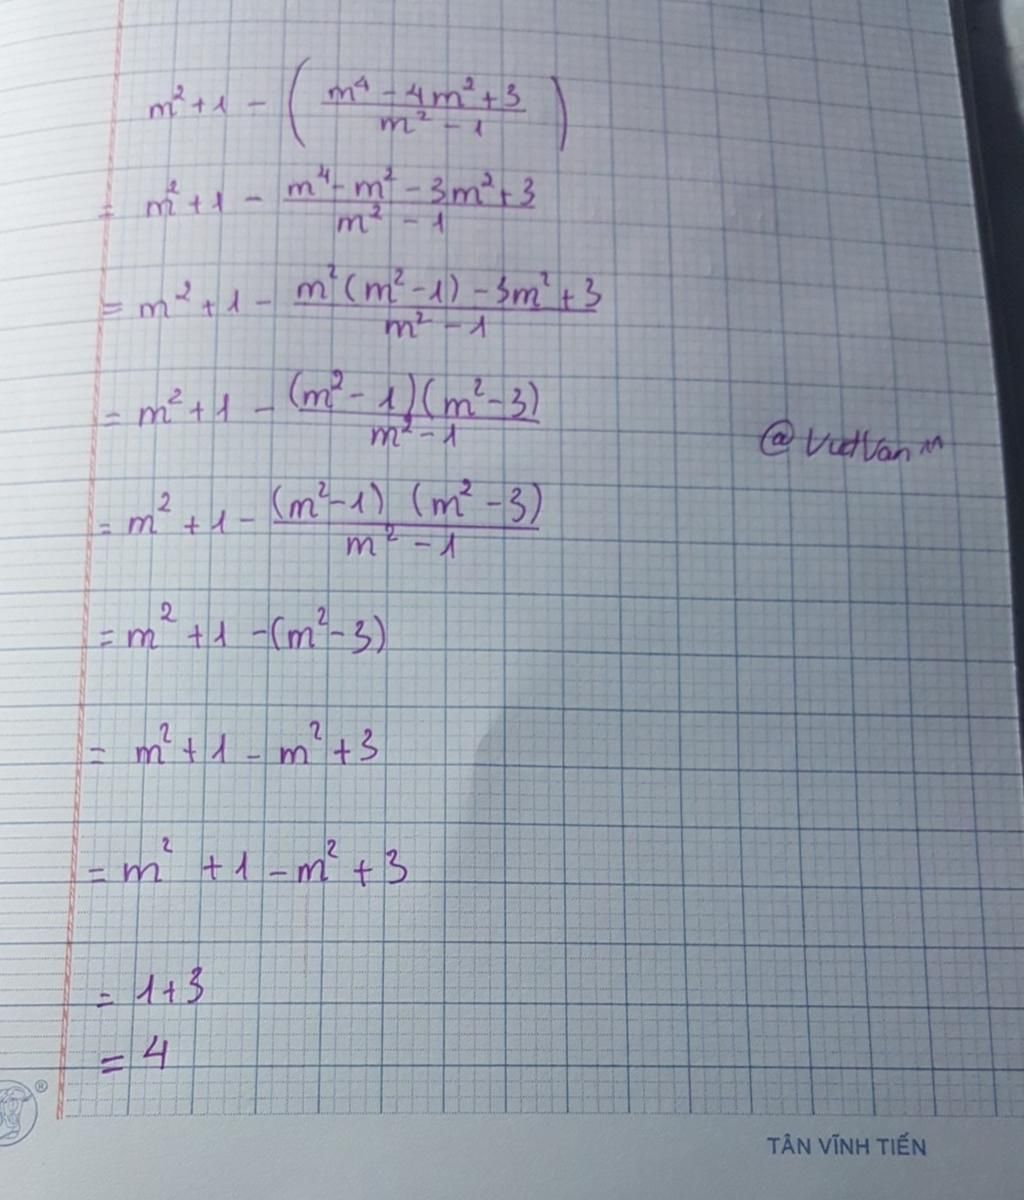 m² + 1 - ( (m⁴ - 4m² + 3) / (m² - 1) )
= m² + 1 - (m⁴ - m² - 3m² + 3) / (m² - 1)
= m² + 1 - (m² (m² - 1) - 3m² + 3) / (m² - 1)
= m² + 1 - ((m² - 1)(m² - 3)) / (m² - 1)
= m² + 1 - ((m² - 1) (m² - 3)) / (m² - 1)
= m² + 1 - (m² - 3)
= m² + 1 - m² + 3
= m² + 1 - m² + 3
= 1 + 3
= 4
®
TÂN VĨNH TIẾN